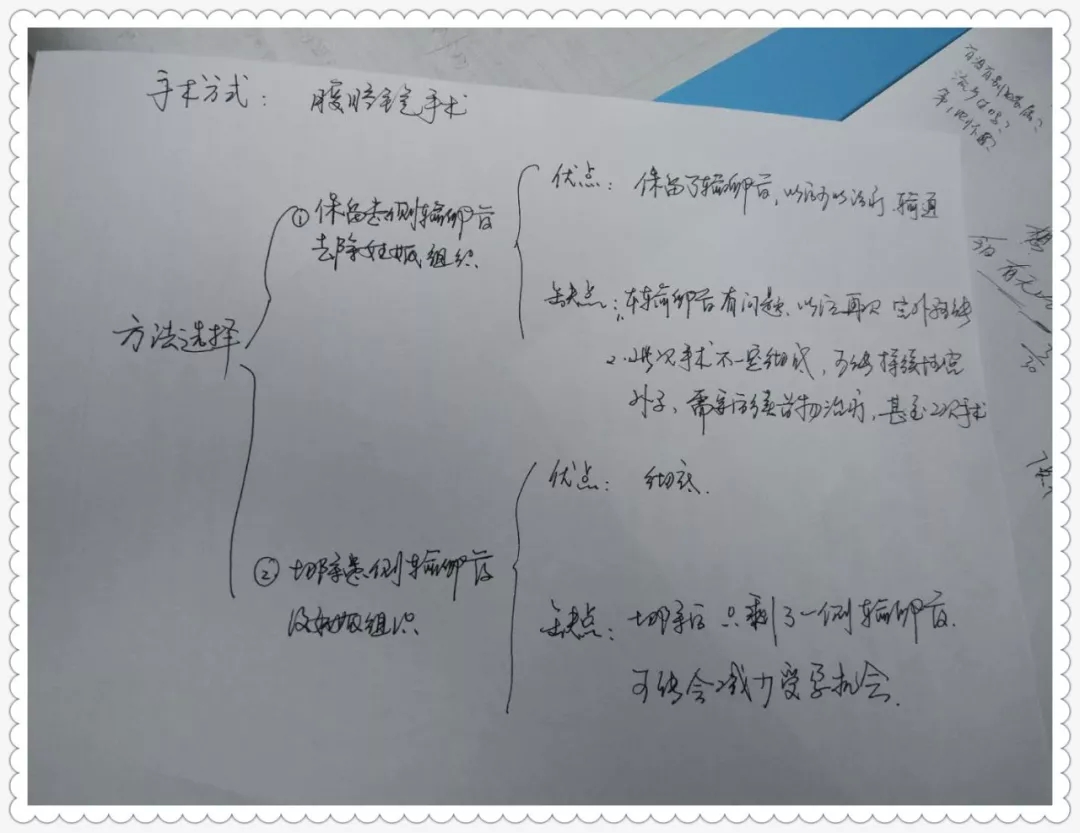 手术方式： 腹腔镜手术
方法选择
①保留患侧输卵管
去除妊娠组织
优点： 保留了输卵管，以后可以治疗、输通
缺点：1.输卵管有问题、以后再次宫外孕
2.此次手术不一定彻底，可能持续性宫
外孕，需要后续药物治疗，甚至2次手术
②切除患侧输卵管
及妊娠组织
优点： 彻底.
缺点： 切除后只剩了一侧输卵管.
可能会减少受孕机会.
有没有